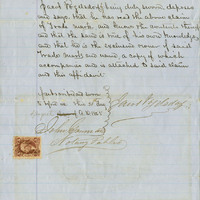 being duly sworn deposes
and says that he has read the above claim
of Trade Mark, and knows the contents thereof
and that the same is true of his own knowledge
and that he is the exclusive owner of said
Trade Mark and name, a copy of which
accompanies and is attached to said claim
and this affidavit
Subscribed and sworn
to before me this
Notary Public